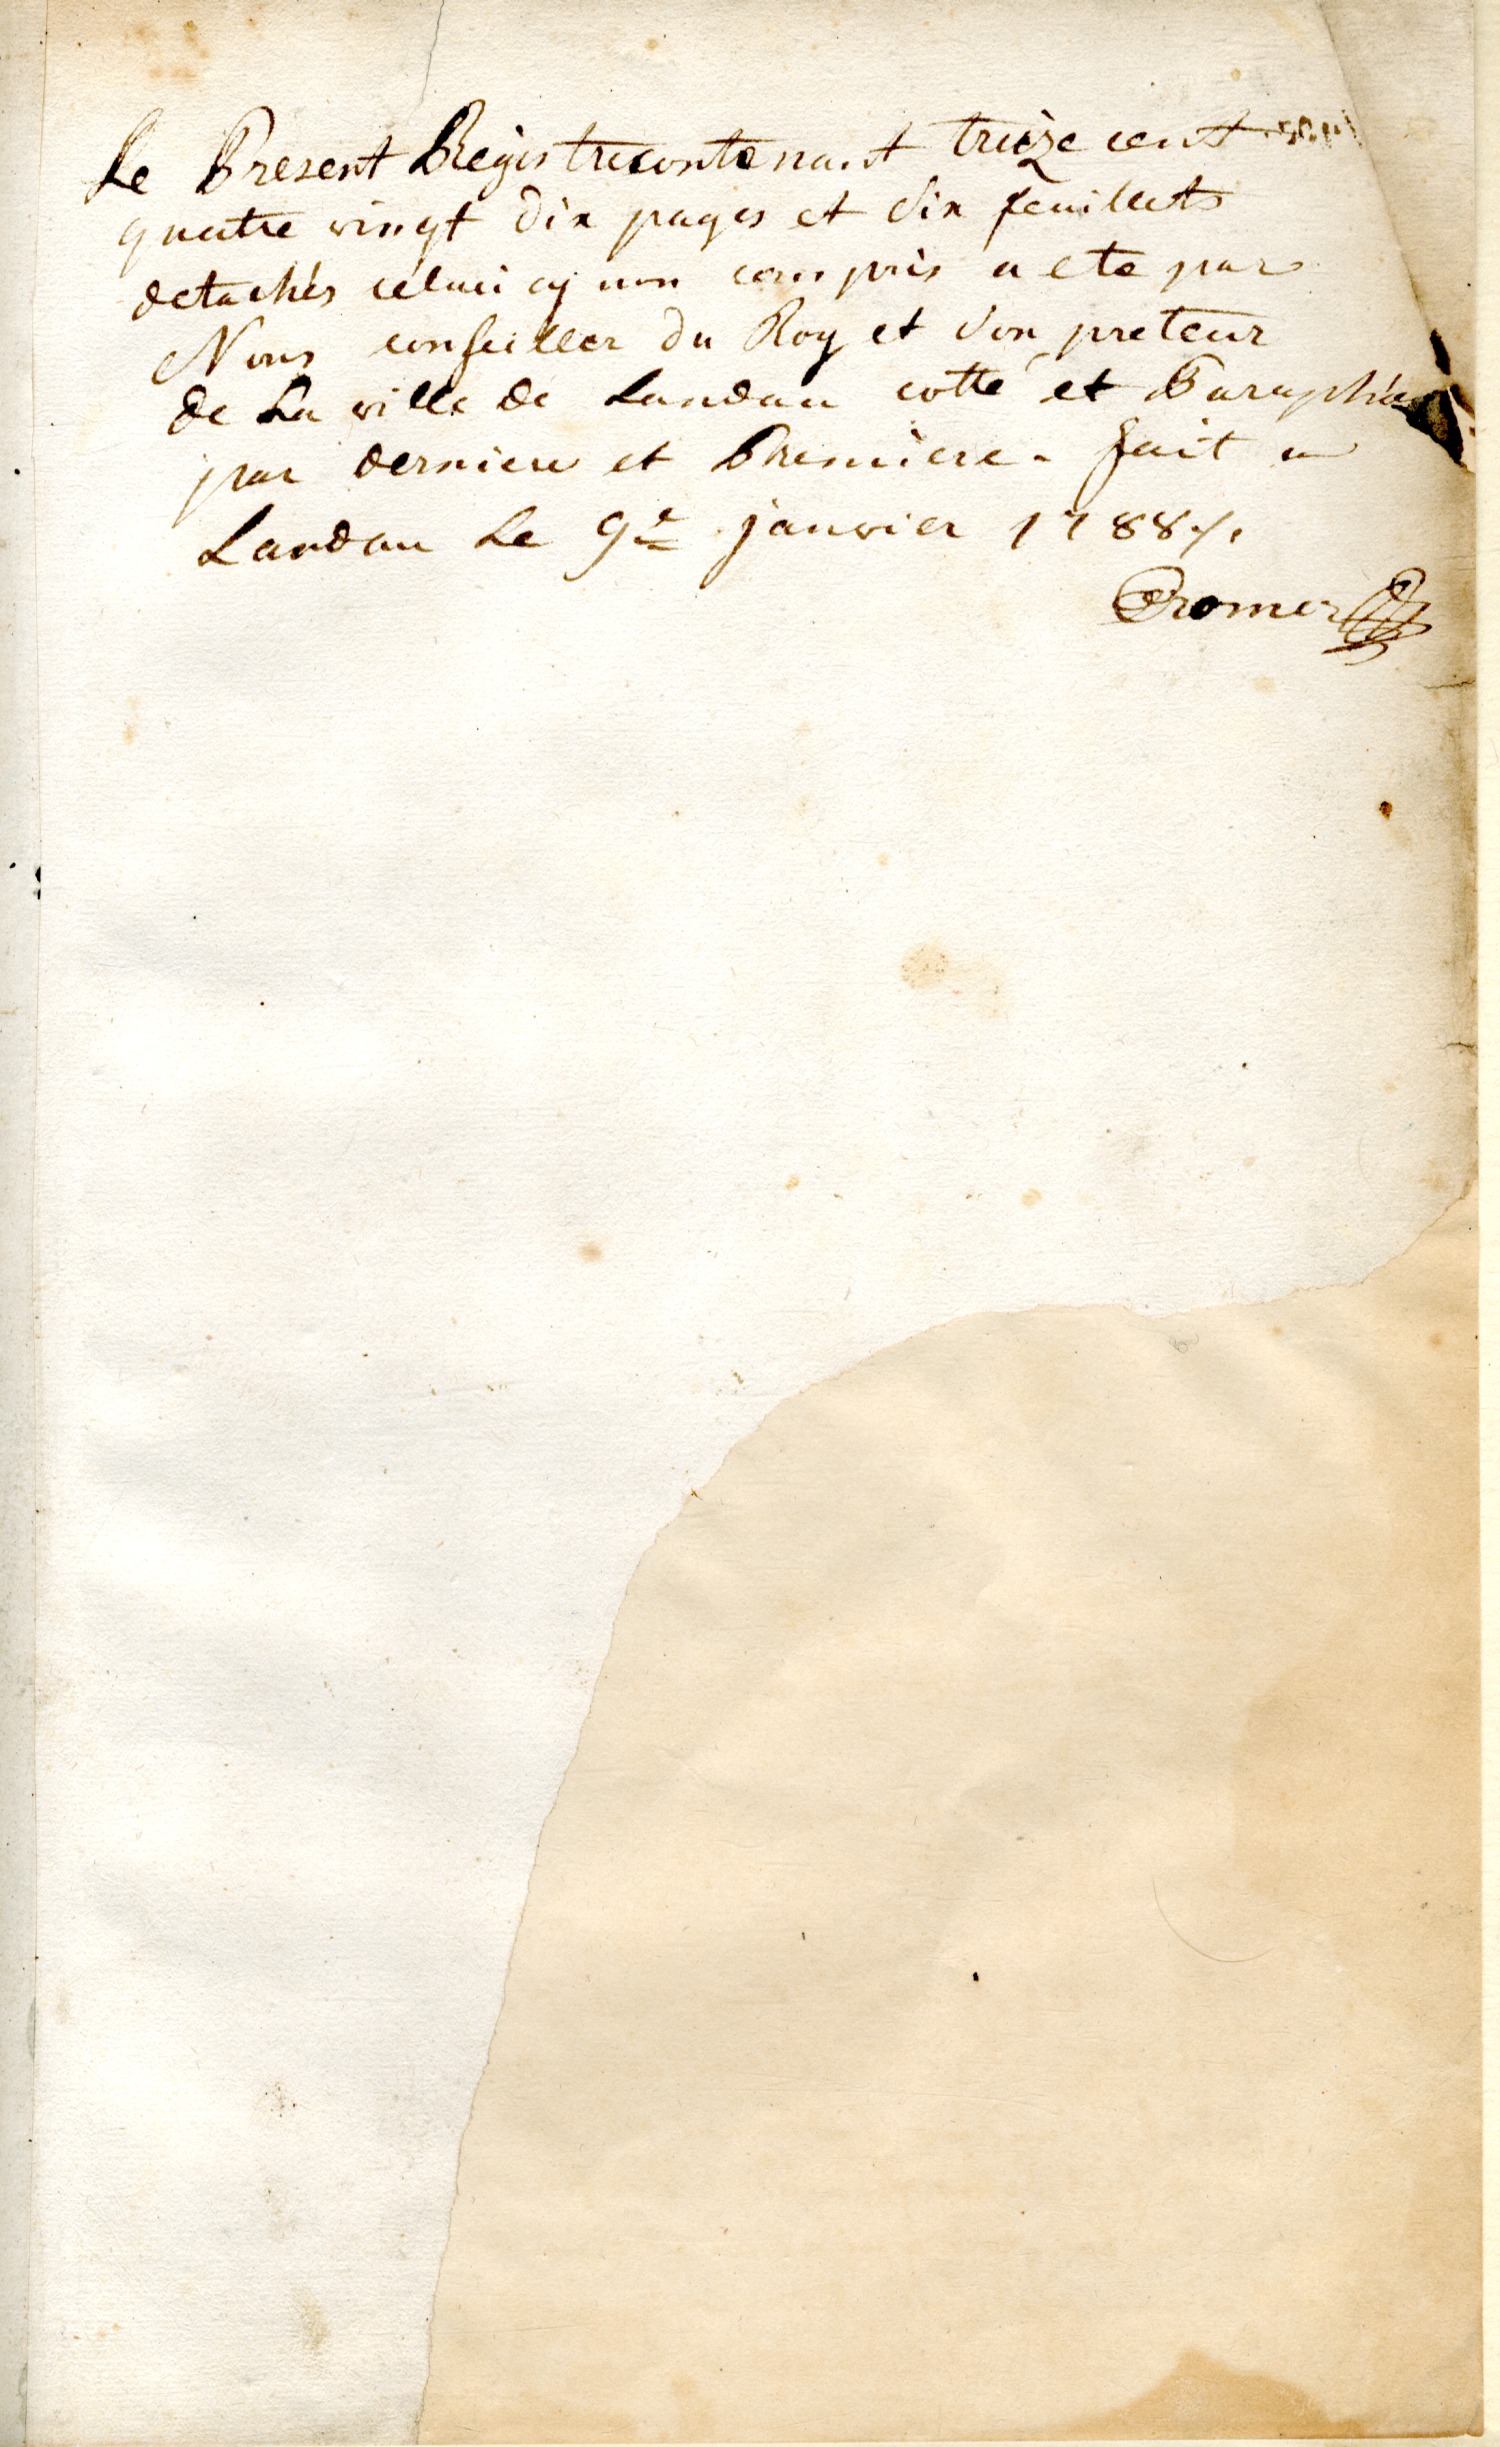 Le Present Registre contenant treize cent
quatre vingt dix pages et six feuillets
detachés celuici cy non compris a ete par
Nous conseiller du Roy et son preteur
de La ville de Landau cotté et Paraphée
par derniere et Premiere. fait a
Landau Le 9e janvier 1788 /.
Cromer